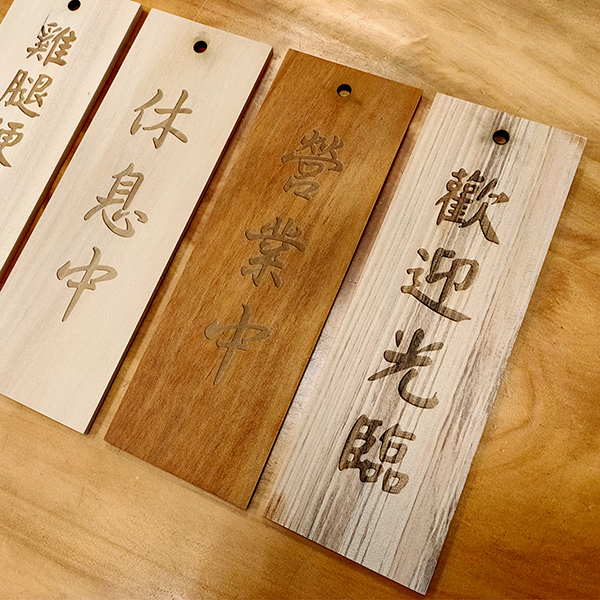 歡迎光臨
營業中
休息中
雞腿便